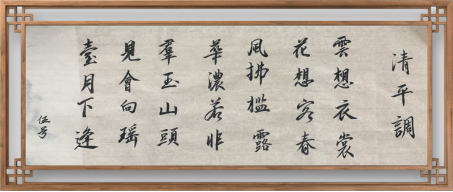 清平調
雲想衣裳
花想容春
風拂檻露
華濃若非
羣玉山頭
見會向瑶
臺月下逢
伍号